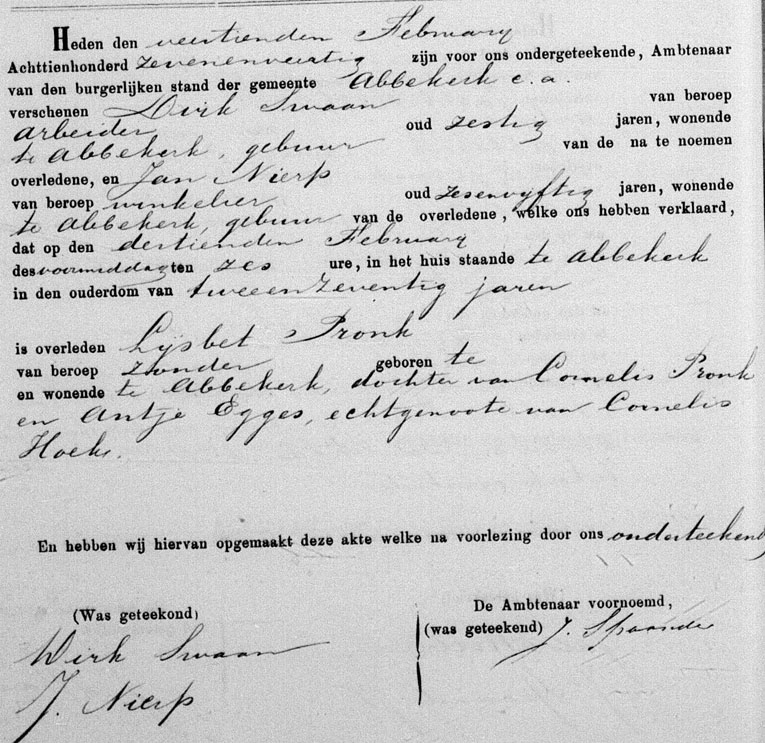 Heden den veertienden February
Achttienhonderd zevenenveertig zijn voor ons ondergeteekende, Ambtenaar
van den burgerlijken stand der gemeente Abbekerk c.a.
verschenen Dirk Swaan van beroep
arbeider oud zestig jaren, wonende
te Abbekerk, gebuur van de na te noemen
overledene, en Jan Nierp
van beroep winkelier oud zesenvyftig jaren, wonende
te Abbekerk, gebuur van de overledene, welke ons hebben verklaard,
dat op den dertienden February
des voormiddags ten zes ure, in het huis staande te Abbekerk
in den ouderdom van tweeenzeventig jaren
is overleden Lysbet Pronk
van beroep zonder geboren te
en wonende te Abbekerk, dochter van Cornelis Pronk
en Antje Egges, echtgenoote van Cornelis
Hoeke.
En hebben wij hiervan opgemaakt deze akte welke na voorlezing door ons onderteekend
(Was geteekond) De Ambtenaar voornoemd,
Dirk Swaan (was geteekend) J. Spaander
J. Nierp